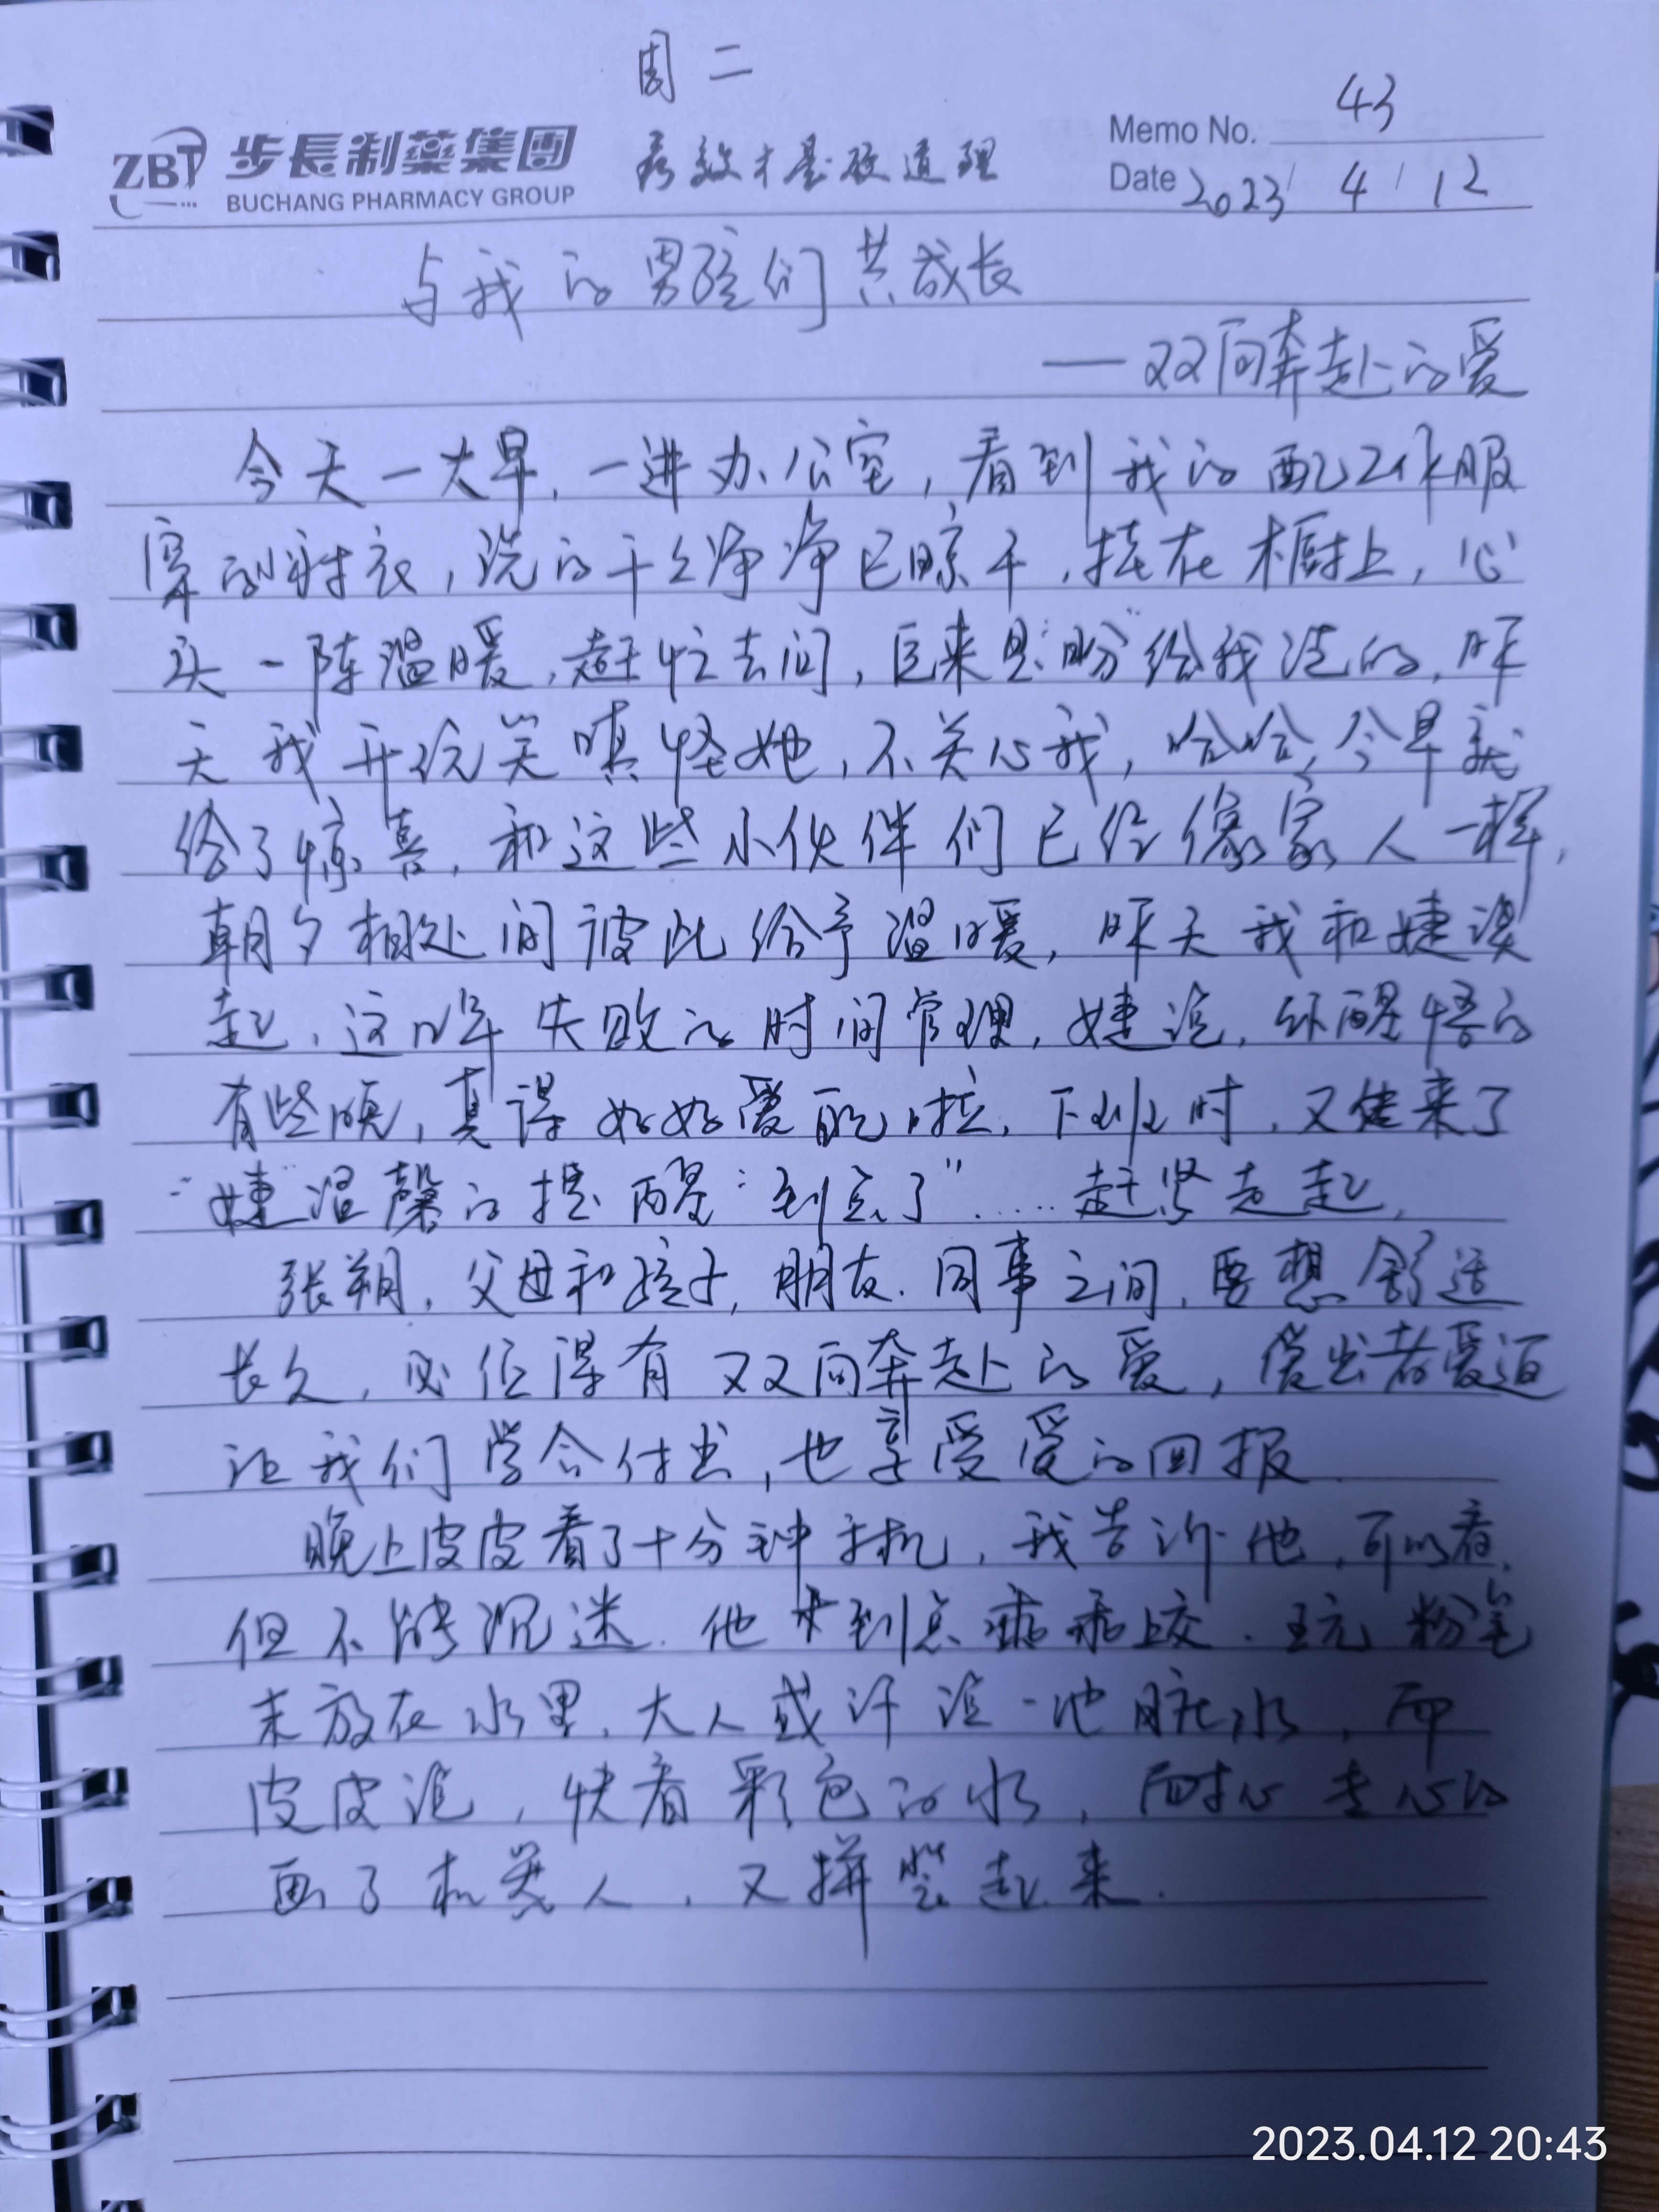 周二
43
ZBT 步長制藥集團 疗效才是硬道理 Memo No.
BUCHANG PHARMACY GROUP Date 2023/4/12
与我的男孩们共成长
——双向奔赴的爱
今天一大早,一进办公室,看到我的配工作服
穿的衬衣,洗的干干净净已晾干,挂在橱上,心
头一阵温暖,赶忙去问,后来是"盼"给我洗的,昨
天我开玩笑嗔怪她,不关心我,哈哈,今早就
给了惊喜,和这些小伙伴们已经像家人一样,
朝夕相处间彼此给予温暖,昨天我和婕谈
起,这几年失败的时间管理,婕说,你醒悟的
有些晚,真得好好爱自己啦,下班时,又传来了
"婕"温馨的提醒:"到点了"……赶紧走起,
张朔,父母和孩子,朋友.同事之间,要想舒适
长久,必住得有双向奔赴的爱,爱出者爱返
让我们学会付出,也享受爱的回报.
晚上皮皮看了十分钟手机,我告诉他,可以看,
但不能沉迷.他才到点乖乖上交.玩粉笔
末放在水里,大人或许说一池脏水,而
皮皮说,快看彩色的水,耐心专心的
画了机器人,又拼装起来.
2023.04.12 20:43